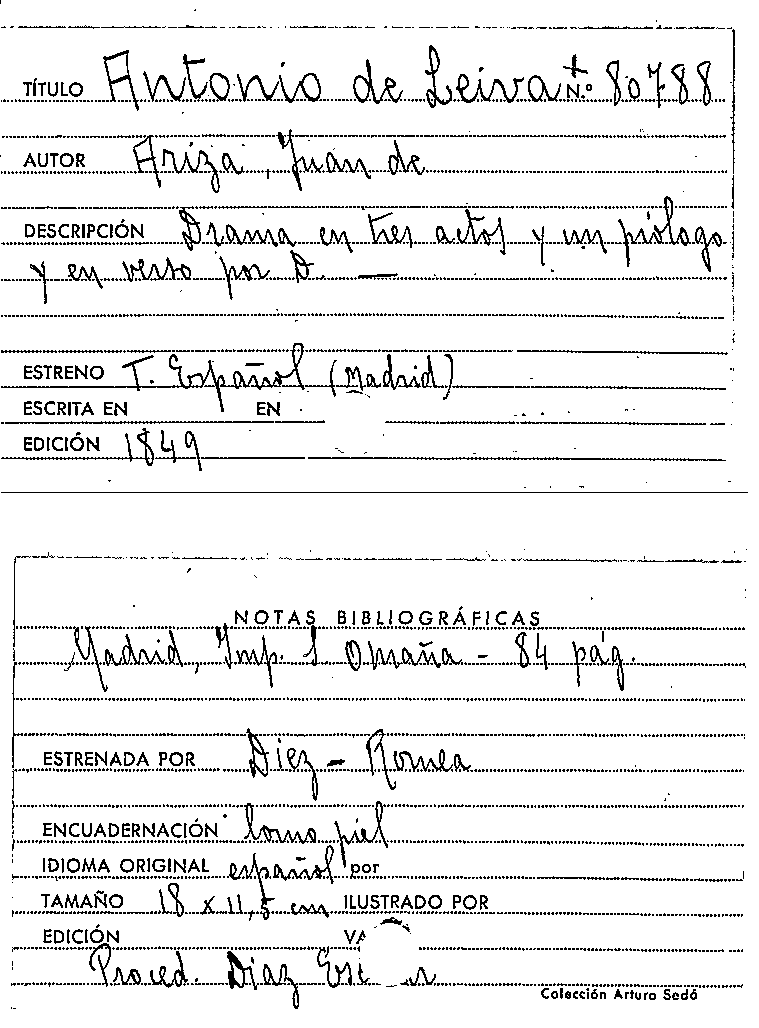 TÍTULO Antonio de Leiva + N.º 80788
AUTOR Ariza, Juan de
DESCRIPCIÓN Drama en tres actos y un prólogo
y en verso por D. —
ESTRENO T. Español (Madrid)
ESCRITA EN EN
EDICIÓN 1849
NOTAS BIBLIOGRÁFICAS
Madrid, Imp. S. Omaña - 84 pág.
ESTRENADA POR Diez - Romea
ENCUADERNACIÓN lomo piel
IDIOMA ORIGINAL español por
TAMAÑO 18 x 11,5 cm ILUSTRADO POR
EDICIÓN
Proced. Diaz
Colección Arturo Sedó